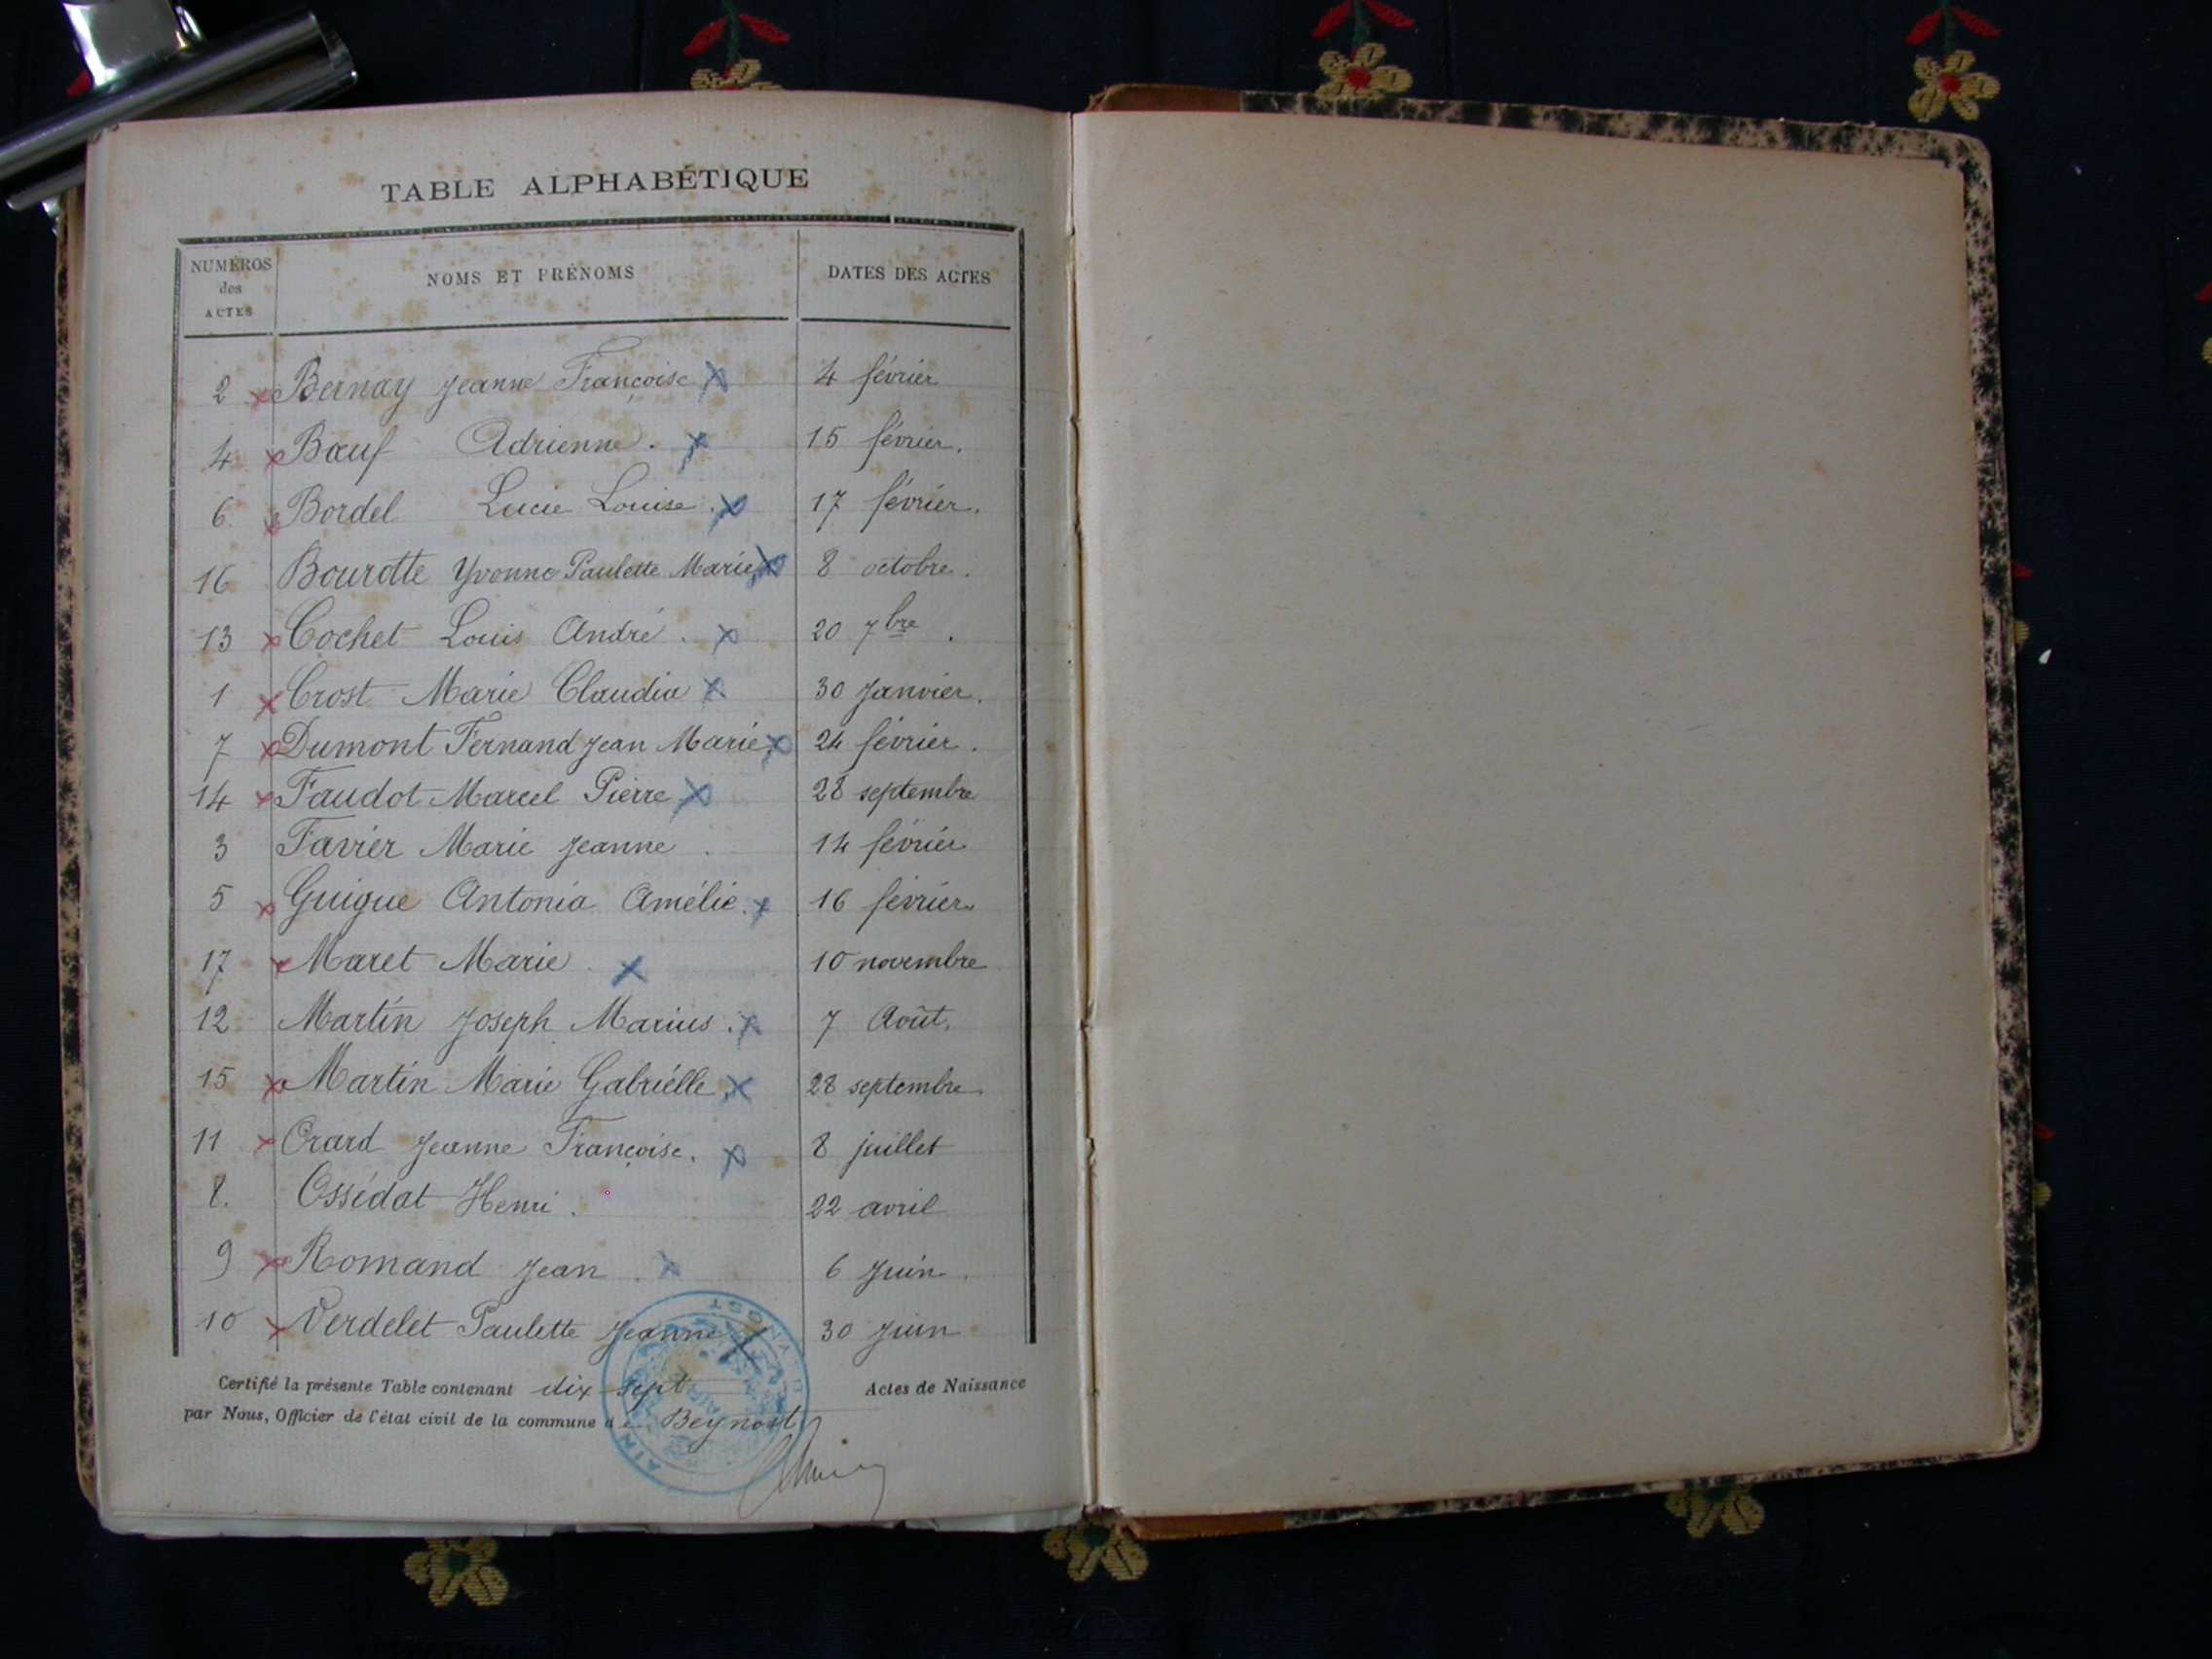 TABLE ALPHABÉTIQUE
NUMÉROS des ACTES NOMS ET PRÉNOMS DATES DES ACTES
2 Bernay Jeanne Françoise 4 février
4 Bœuf Adrienne. 15 février.
6 Bordel Lucie Louise. 17 février.
16 Bourotte Yvonne Paulette Marie 8 octobre.
13 Cochet Louis André. 20 7bre.
1 Crost Marie Claudia 30 Janvier.
7 Dumont Fernand Jean Marie 24 février.
14 Faudot Marcel Pierre 28 septembre
3 Favier Marie Jeanne. 14 février
5 Guigue Antonia Amélie. 16 février
17 Maret Marie. 10 novembre
12 Martin Joseph Marius. 7 Août.
15 Martin Marie Gabriélle 28 septembre
11 Orard Jeanne Françoise. 8 juillet
8. Ossédat Henri. 22 avril
9 Romand Jean. 6 Juin.
10 Verdelet Paulette Jeanne 30 Juin
Certifié la présente Table contenant dix-sept Actes de Naissance
par Nous, Officier de l'état civil de la commune de Beynost